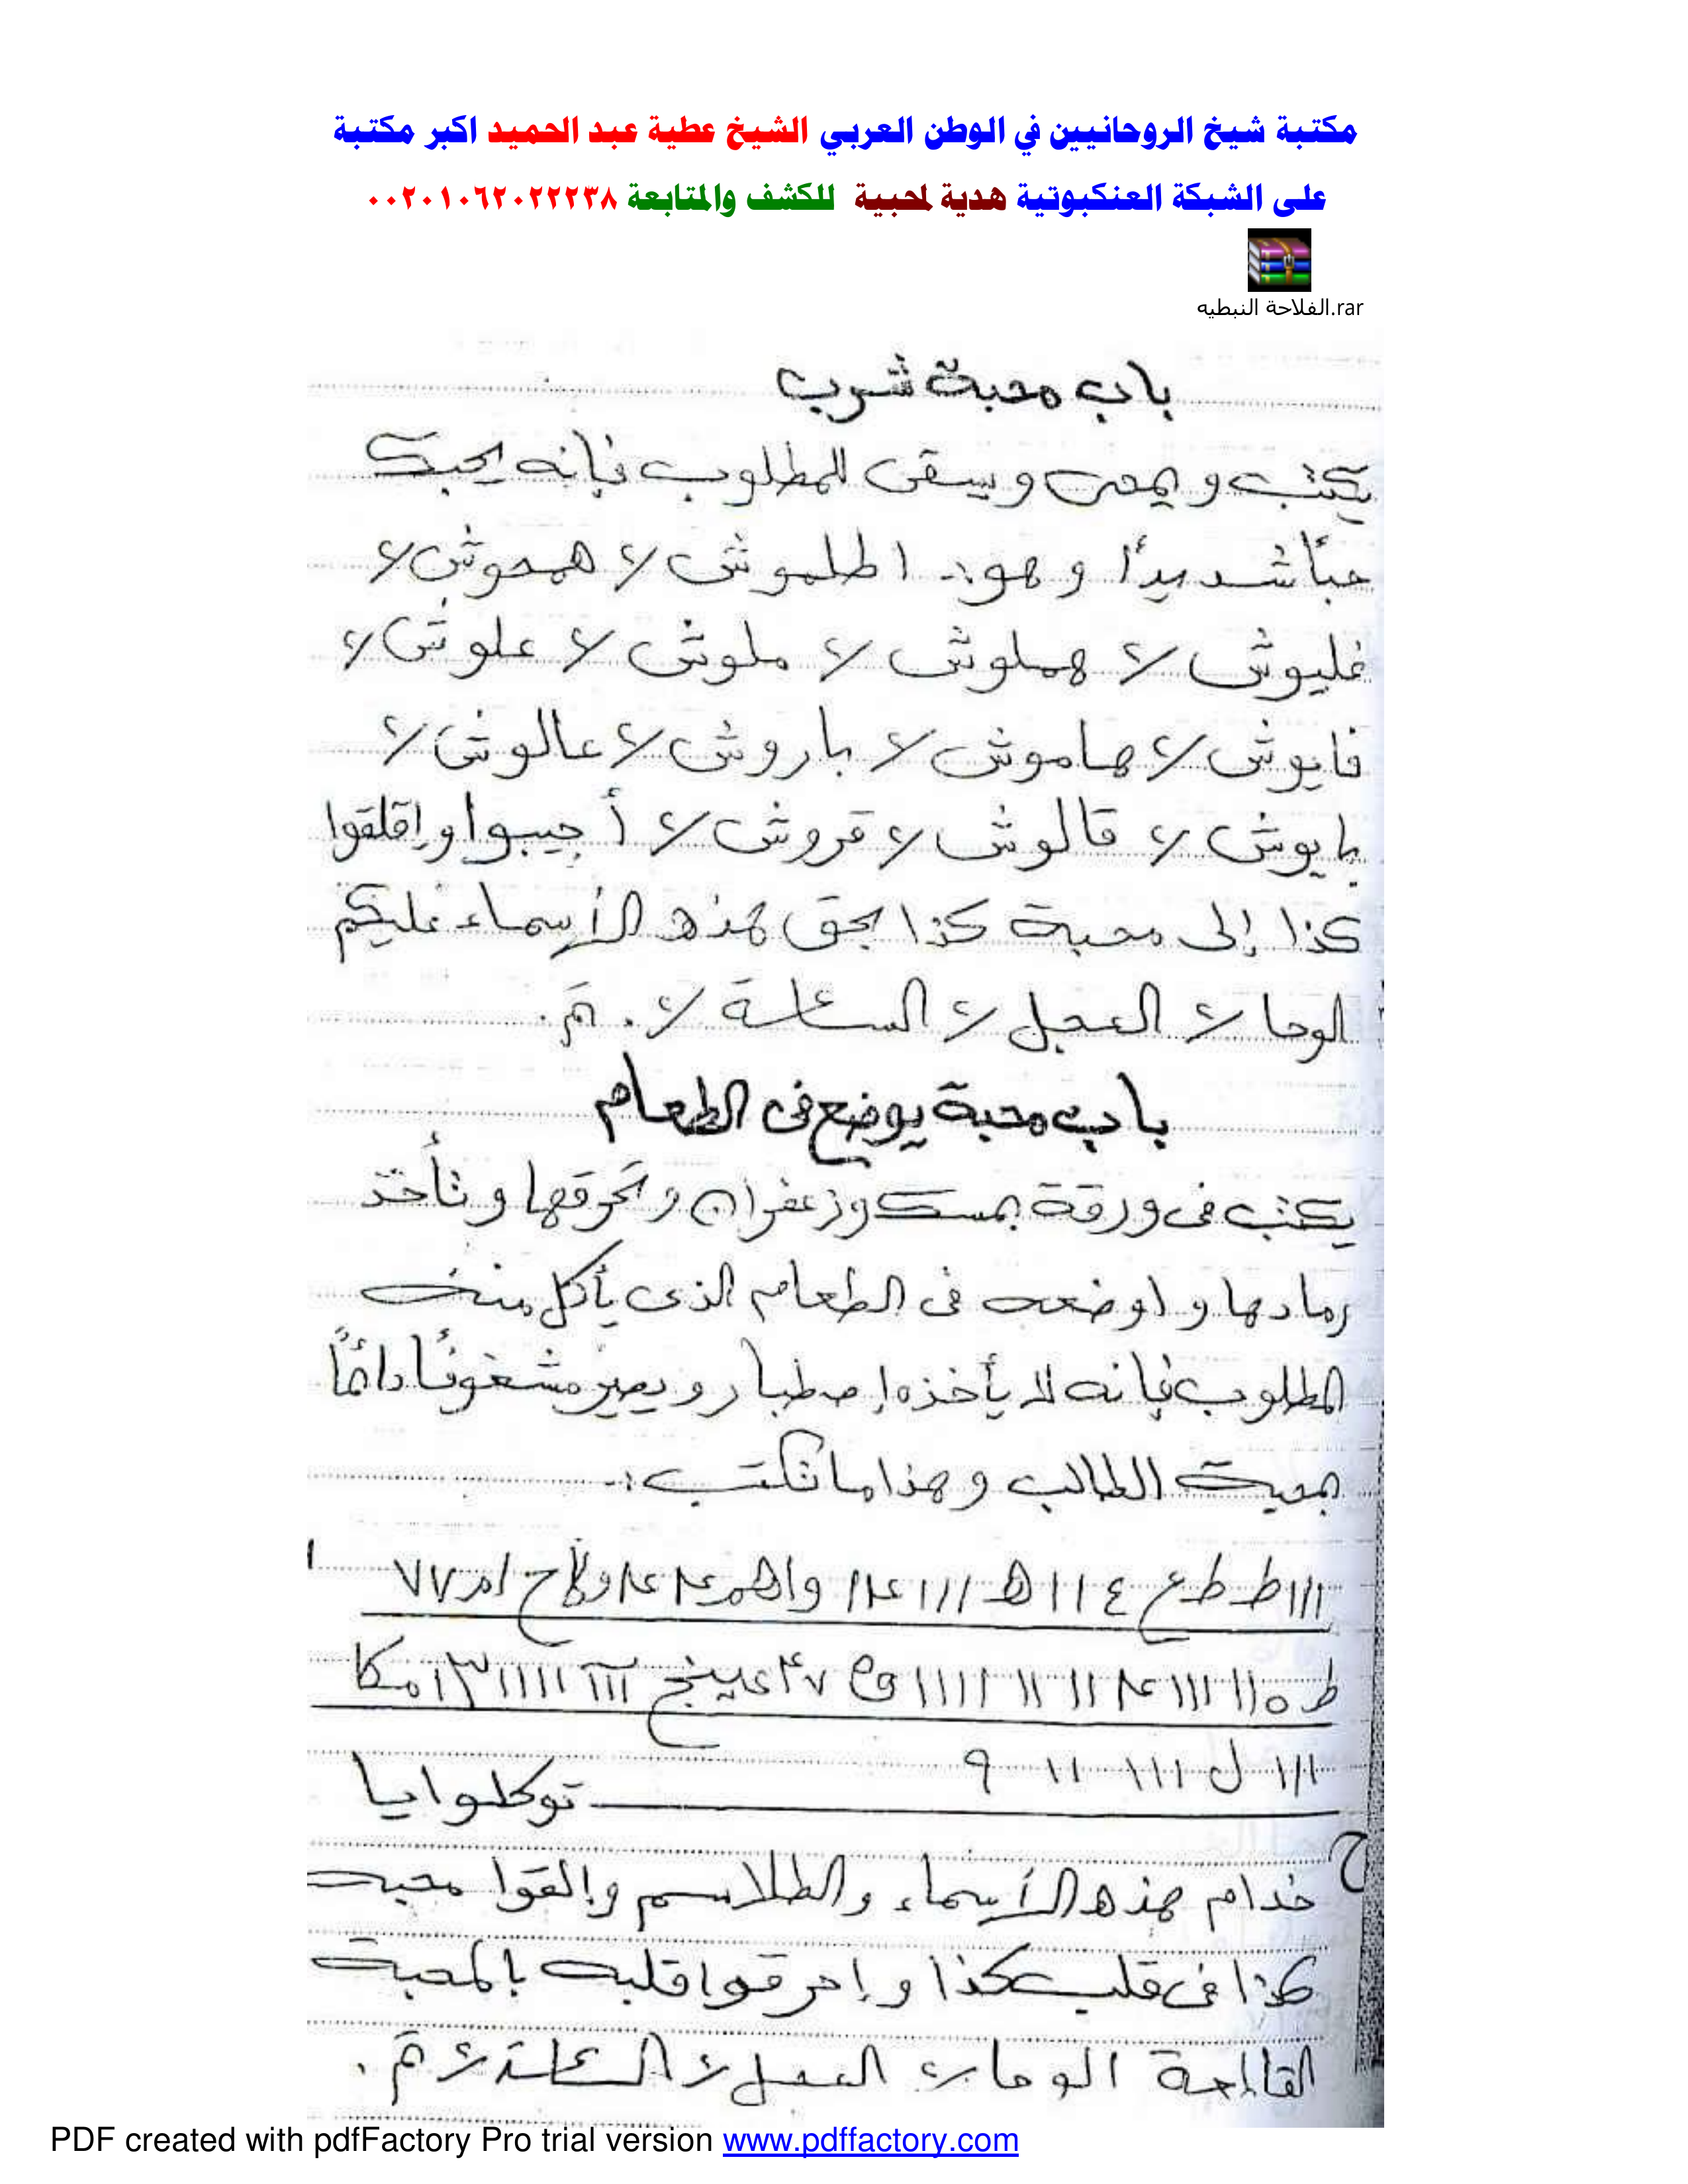 مكتبة شيخ الروحانيين في الوطن العربي الشيخ عطية عبد الحميد اكبر مكتبة
على الشبكة العنكبوتية هدية لمحبية للكشف والمتابعة ٠٠٢٠١٠٦٢٠٢٢٢٣٨
الفلاحة النبطيه.rar
باب محبة شرب
يكتب ويمحى ويسقى للمطلوب فإنه يحبك
حباً شديداً وهو :ـ اطلموش ٢/ همحوش ٢/
غليوش ٢/ هملوش ٢/ ملوش ٢/ علوش ٢/
فايوش ٢/ هاموش ٢/ باروش ٢/ عالوش ٢/
بايوش ٢/ قالوش ٢/ قروش ٢/ أجيبوا وإقلقوا
كذا إلى محبة كذا بحق هذه الأسماء عليكم
الوحا ٢/ العجل ٢/ الساعة ٢/ . تم .
باب محبة يوضع فى الطعام
يكتب فى ورقة بمسك وزعفران وتحرقها وتأخذ
رمادها واوضعه فى الطعام الذى يأكل منه
المطلوب فإنه لا يأخذه إصطبار ويصير مشغوفاً دائماً
بمحبة الطالب وهذا ما تكتب :ـ
ااا ط ط ع ٤ اا ھ ااا
ط ٥ ااا
ااا ل ااا اا ٩ توكلوا يا
خدام هذه الأسماء والطلاسم وإلقوا محبة
كذا فى قلب كذا وإحرقوا قلبه بالمحبة
الوحا ٢/ العجل ٢/ الساعة ٢/ تم .
PDF created with pdfFactory Pro trial version www.pdffactory.com